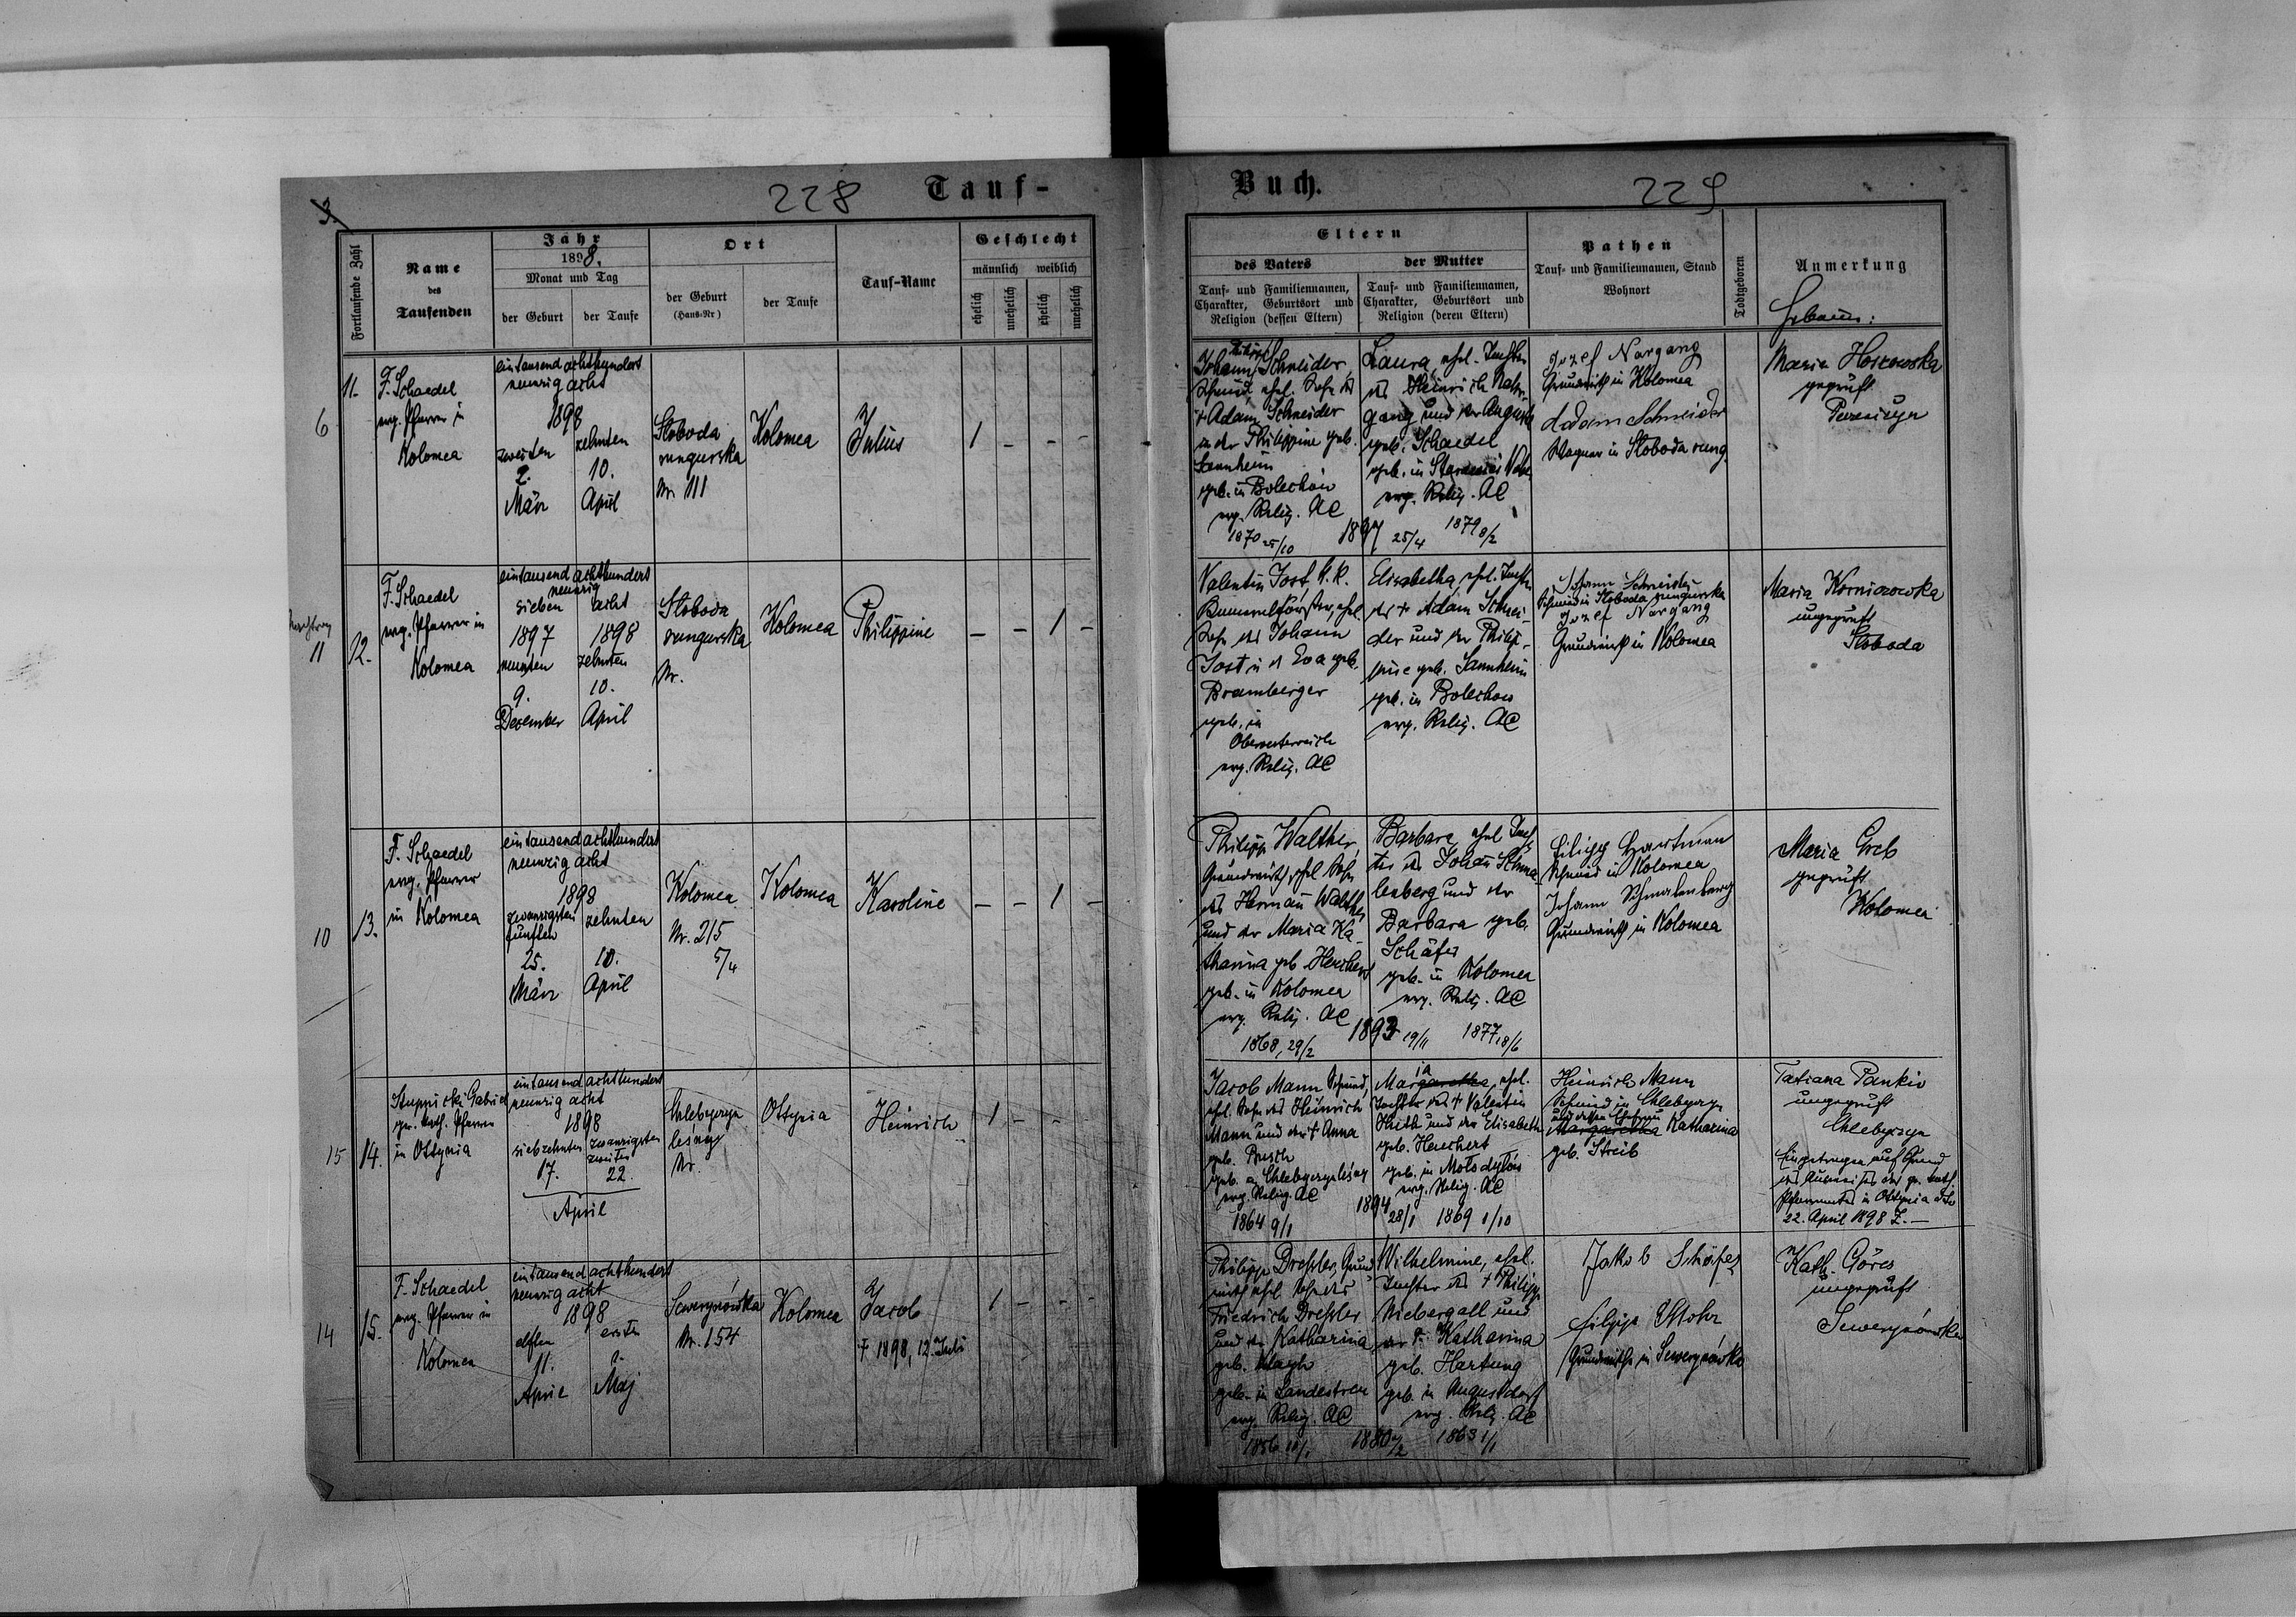 3.
228
Tauf-
Fortlaufende Zahl
Name
des
Taufenden
Jahr
1898.
Monat und Tag
der Geburt
der Taufe
Ort
der Geburt
(Haus-Nr)
der Taufe
Tauf-Name
Geschlecht
männlich
weiblich
ehelich
unehelich
ehelich
unehelich
6
11.
F. Schaedel
evg. Pfarrer in
Kolomea
eintausend achthundert
neunzig acht
1898
zweiten
2.
März
zehnten
10.
April
Sloboda
rungurska
Nr. 111
Kolomea
Julius
1 - - -
Nachtrag
11
12.
F. Schaedel
evg. Pfarrer in
Kolomea
eintausend achthundert
neunzig
sieben acht
1897 1898
neunten zehnten
9. 10.
Dezember April
Sloboda
rungurska
Nr.
Kolomea
Philippine
- - 1 -
10
13.
F. Schaedel
evg. Pfarrer
in Kolomea
eintausend achthundert
neunzig acht
1898
zwanzigsten zehnten
fünften
25. 10.
März April
Kolomea
Nr. 215
5/4
Kolomea
Karoline
- - 1 -
15
14.
Stupnicki Gabriel
gr. kath. Pfarrer
in Ottynia
eintausend achthundert
neunzig acht
1898
siebzehnten zwanzigsten
zweiten
17. 22.
April
Chlebyczyn
leśny
Nr.
Ottynia
Heinrich
1 - -
14
15.
F. Schaedel
evg. Pfarrer in
Kolomea
eintausend achthundert
neunzig acht
1898
elften ersten
11.
April Maj
Sewerynówka
Nr. 154
Kolomea
Jacob
† 1898, 12. Juli
1 - - -
Buch.
229
Eltern
des Vaters
der Mutter
Tauf- und Familiennamen,
Charakter, Geburtsort und
Religion (dessen Eltern)
Tauf- und Familiennamen,
Charakter, Geburtsort und
Religion (deren Eltern)
Pathen
Tauf- und Familiennamen, Stand
Wohnort
Todtgeboren
Anmerkung
Johann Schneider,
Schmid, ehel. Sohn des
† Adam Schneider
u. der Philippine geb.
Sannheim
geb. in Bolechów
evg. Relig. AC
1870 25/10
1897 25/4
Laura, ehel. Tochter
des Heinrich Nar-
gang und der Augusta
geb. Schaedel
evg. Relig. AC
1879 8/2
Jozef Nargang
Grundwirth in Kolomea
Adam Schneider
Wagner in Sloboda rung.
geprüft
Valentin Jost, k.k.
Sohn des Johann
Jost u. d. Eva geb.
Bramberger
geb. in
Oberoesterreich
evg. Relig. AC
Elisabetha, ehel. Tochter
des † Adam Schnei-
der und der Philip-
pine geb. Sannheim
geb. in Bolechow
evg. Relig. AC
Johann Schneider
Schmid in Sloboda rungurska
Jozef Nargang
Grundwirth in Kolomea
Maria Korniozowska
ungeprüft
Sloboda
Philipp Walther,
Grundwirth, ehel. Sohn
des Herman Walther
und der Maria Ka-
tharina geb. Herchert
geb. in Kolomea
evg. Relig. AC
1868, 29/2
1893 19/11
Barbara, ehel. Toch-
ter des Johan Schma-
lenberg und der
Barbara geb.
Schäfer
geb. in Kolomea
evg. Relig. AC
1877 18/6
Filipp Hartman
Schmid in Kolomea
Johann Schmalenberg
Grundwirth in Kolomea
Maria Greb
geprüft
Kolomea
Jacob Mann Schmid,
ehel. Sohn des Heinrich
Mann und der † Anna
geb. Busch
geb. in Chlebyczyn leśny
evg. Relig. AC
1864 9/1
1894 28/1
Maria, ehel.
Tochter des † Valentin
Huth und der Elisabeth
geb. Herchert
geb. in Mołodyłów
evg. Relig. AC
1869 1/10
Heinrich Mann
Schmid in Chlebyczyn
und dessen Ehefrau
Margaretha Katharina
geb. Streib
Tatiana Pankiv
ungeprüft
Chlebyczyn
Eingetragen auf Grund
des Ausweises des gr. kath.
Pfarramtes in Ottynia ddo
22. April 1898 Z. —
Philipp Dressler, Grund-
wirth, ehel. Sohn des
Friedrich Dressler
und der Katharina
geb.
geb. in Landestreu
evg. Relig. AC
Wilhelmine, ehel.
Tochter des † Philipp
Niebergall und
der † Katharina
geb. Hartung
geb. in Augustdorf
evg. Relig. AC
1863 1/1
Jakob Schäfer
Filipp Mohr
Grundwirthe in Sewerynówka
Kath. Göres
ungeprüft
Sewerynówka